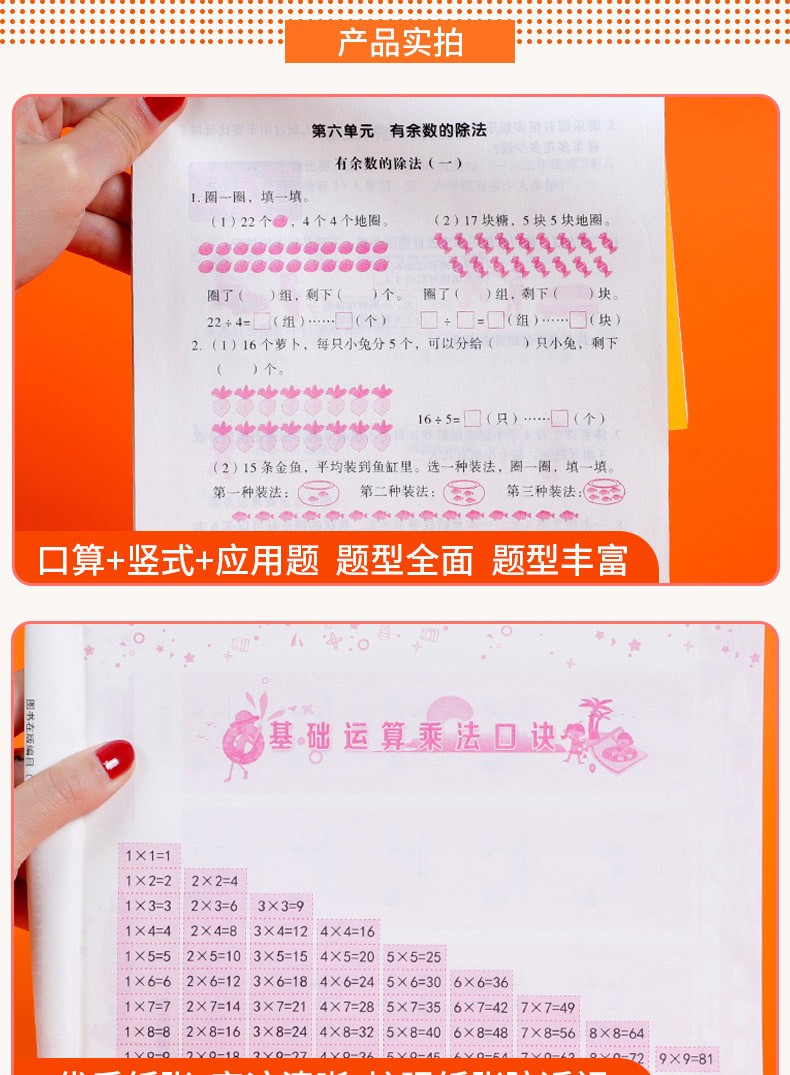 产品实拍
第六单元 有余数的除法
有余数的除法(一)
1. 圈一圈,填一填。
(1)22个 ,4个4个地圈。 (2)17块糖,5块5块地圈。
圈了( )组,剩下( )个。 圈了( )组,剩下( )块。
22÷4=□(组)……□(个) □÷□=□(组)……□(块)
2. (1)16个萝卜,每只小兔分5个,可以分给( )只小兔,剩下
( )个。
16÷5=□(只)……□(个)
(2)15条金鱼,平均装到鱼缸里。选一种装法,圈一圈,填一填。
第一种装法: 第二种装法: 第三种装法:
口算+竖式+应用题 题型全面 题型丰富
图书在版编目(
基础运算乘法口诀
1×1=1
1×2=2 2×2=4
1×3=3 2×3=6 3×3=9
1×4=4 2×4=8 3×4=12 4×4=16
1×5=5 2×5=10 3×5=15 4×5=20 5×5=25
1×6=6 2×6=12 3×6=18 4×6=24 5×6=30 6×6=36
1×7=7 2×7=14 3×7=21 4×7=28 5×7=35 6×7=42 7×7=49
1×8=8 2×8=16 3×8=24 4×8=32 5×8=40 6×8=48 7×8=56 8×8=64
1×9=9 2×9=18 3×9=27 4×9=36 5×9=45 6×9=54 7×9=63 8×9=72 9×9=81